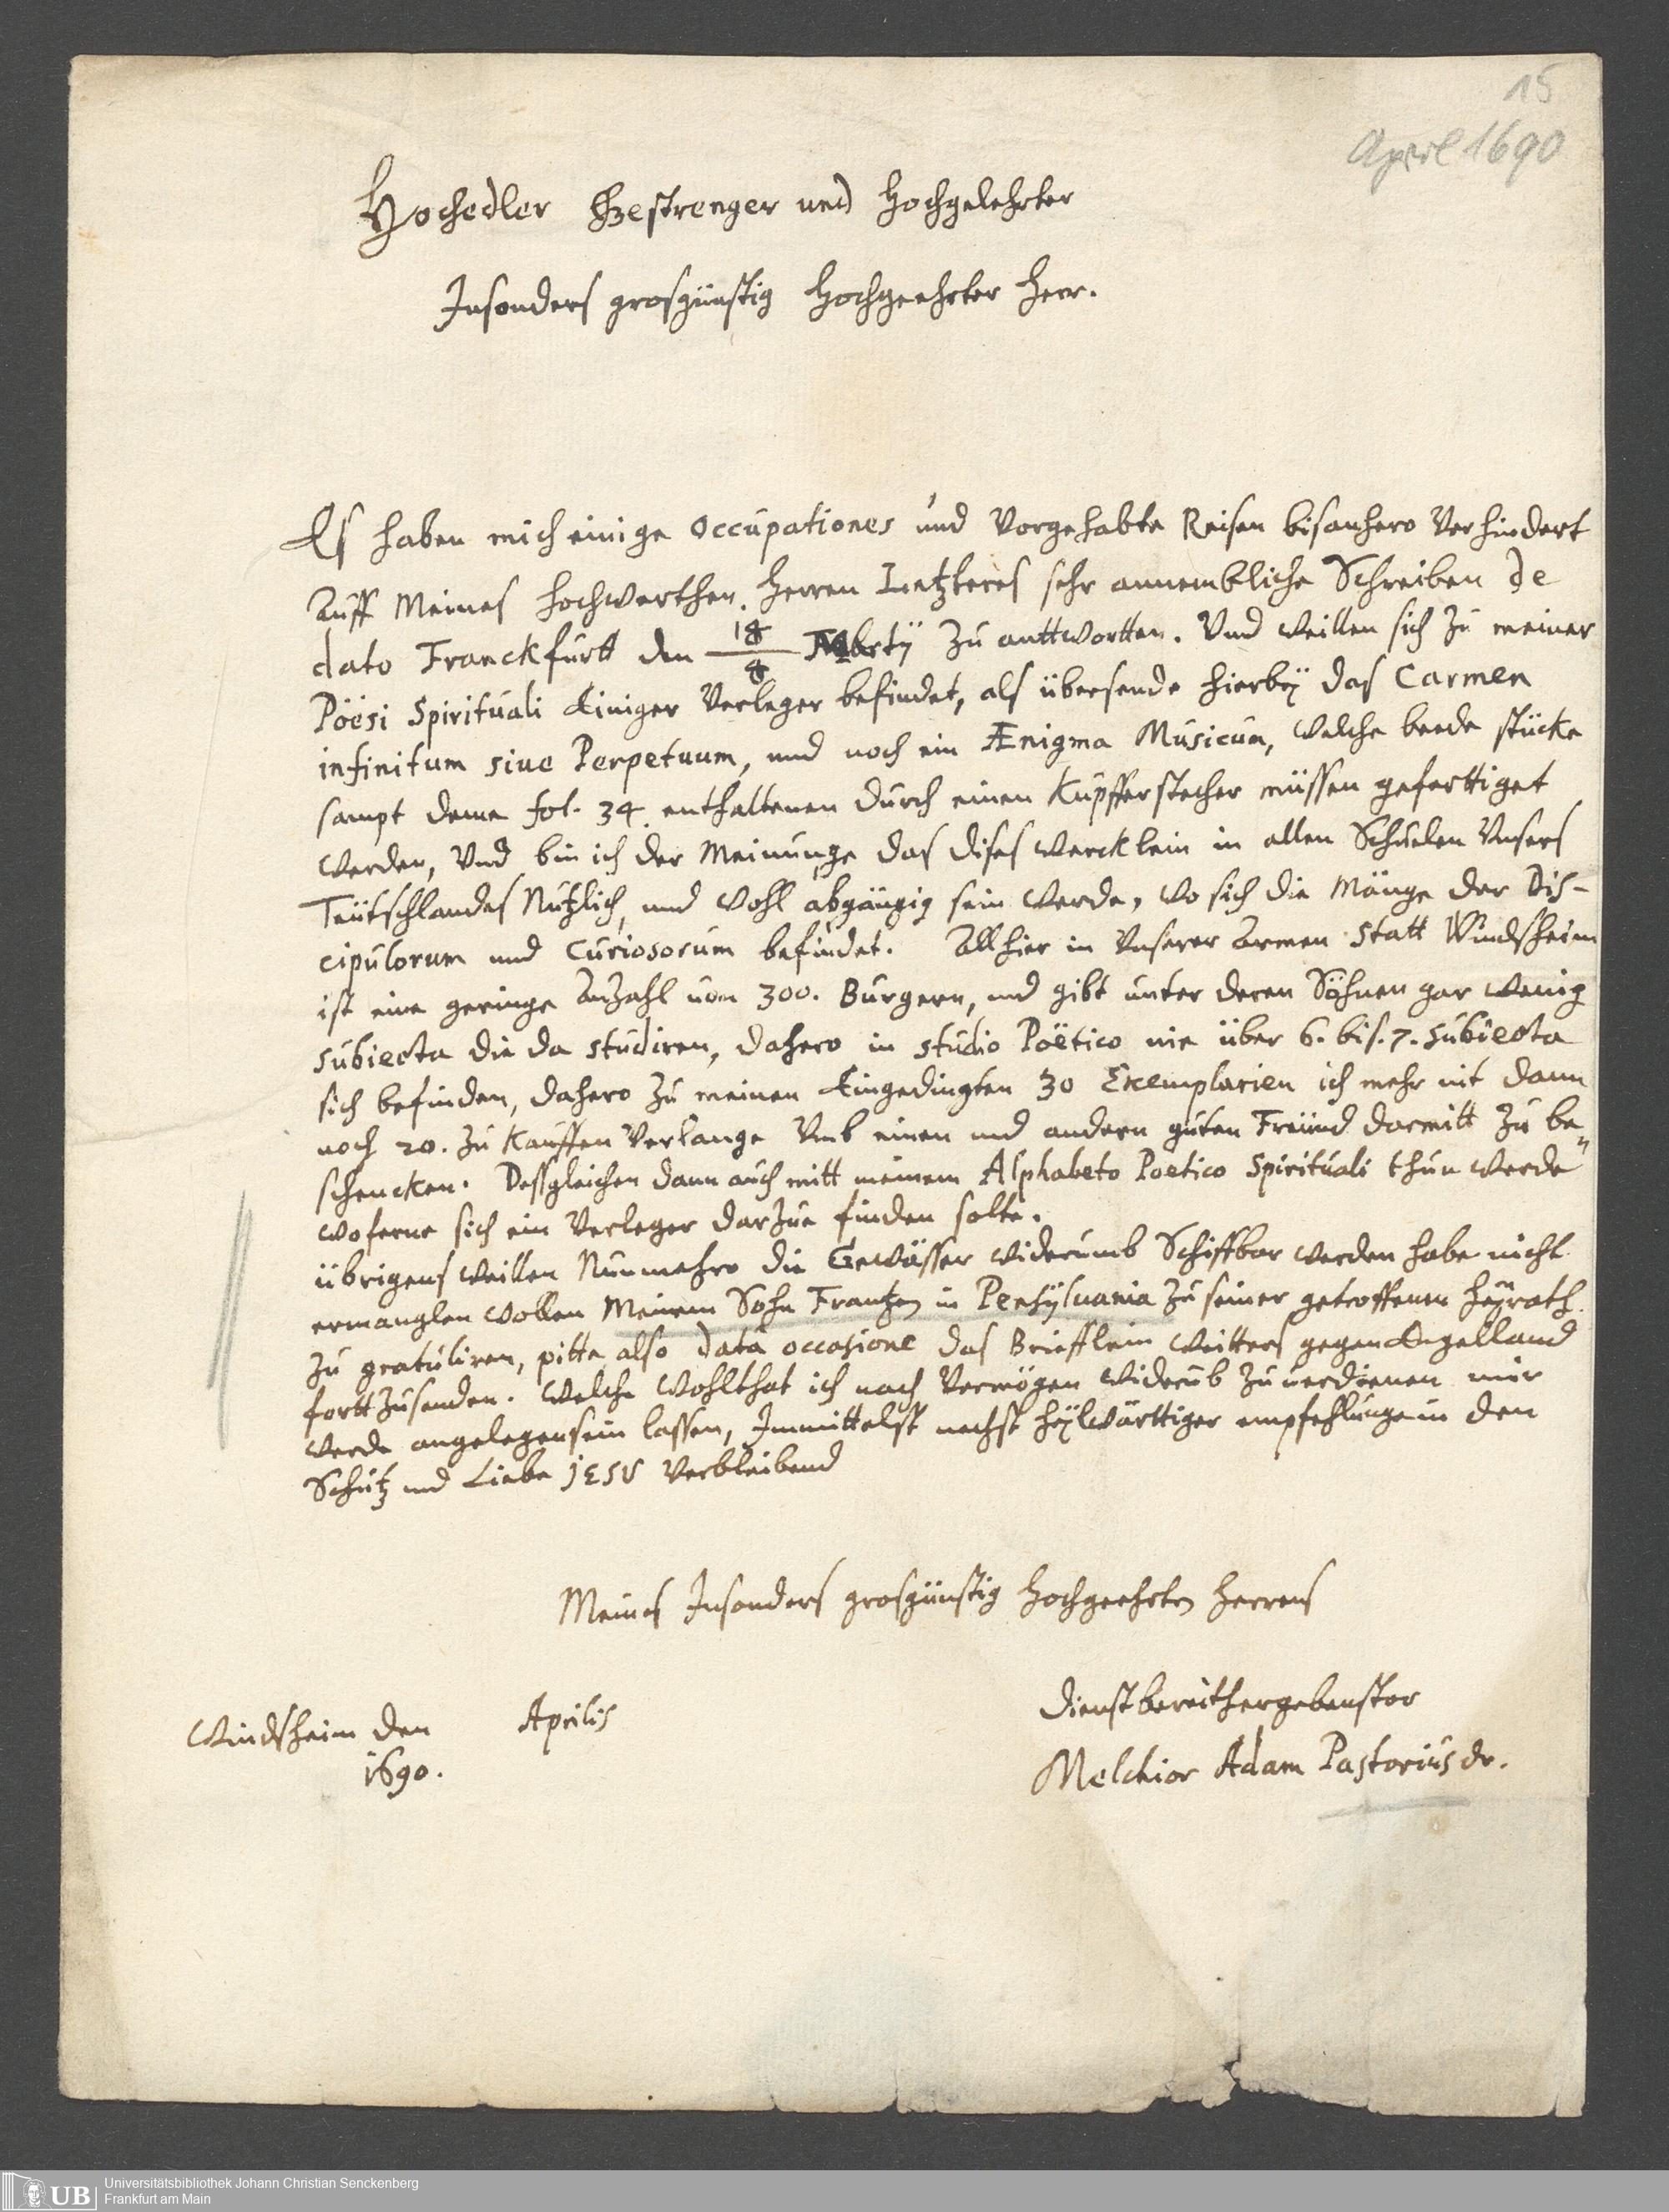 15
April 1690
Hochedler Gestrenger und Hochgelehrter
Insonders grosgünstig Hochgeehrter Herr.
Es haben mich einige occupationes und vorgehabte Reisen bisanhero verhindert
auff Meines hochwerthen Herren Letzteres sehr annembliche Schreiben de
dato Franckfurtt den 18/8 Martÿ zu anttwortten. Und weillen sich zu meiner
Pöesi Spirituali Einiger Verleger befindet, als übersende hierbeÿ das Carmen
infinitum siue Perpetuum, und noch ein Ænigma Musicum, welche beede stücke
sampt deme fol. 34. enthaltenen durch einen Kupfferstecher müssen gefertiget
werden, Und bin ich der Meinunge das dises wercklein in allen Schuelen Unsers
Teutschlandes Nutzlich, und wohl abgängig sein werde, wo sich die Mänge der Dis-
cipulorum und Curiosorum befindet. Allhier in Unserer armen Statt Windsheim
ist eine geringe Anzahl von 300. Burgern, und gibt unter deren Söhnen gar wenig
subiecta die da studiren, dahero in studio Poëtico nie über 6. bis. 7. subiecta
sich befinden, dahero zu meinen Eingedingten 30 Exemplarien ich mehr nit dann
noch 20. zu Kauffen Verlange Umb einen und andern guten Freund darmitt zu be"
schencken. Dessgleichen dann auch mitt meinem Alphabeto Poetico Spirituali thun werde
woferne sich ein Verleger darzue finden solte.
übrigens weillen Nunmehro die Gewässer widerumb Schiffbar werden habe nicht
ermanglen wollen Meinem Sohn Frantzen in Pensÿluania zu seiner getroffenen Heÿrath
zu gratuliren, pitte also datâ occasione das Briefflein weitters gegen Engelland
fortt zu senden. Welche Wohlthat ich nach Vermögen widerub zu verdienen mir
werde angelegen sein lassen, Immittelst nechst heÿlwärttiger empfehlunge in den
Schutz und Liebe JESU verbleibend
Meines Insonders grosgünstig Hochgeehrten Herrens
Dienstbereithergebenster
Windsheim den Aprilis
1690.
Melchior Adam Pastorius dr.
UB Universitätsbibliothek Johann Christian Senckenberg
Frankfurt am Main